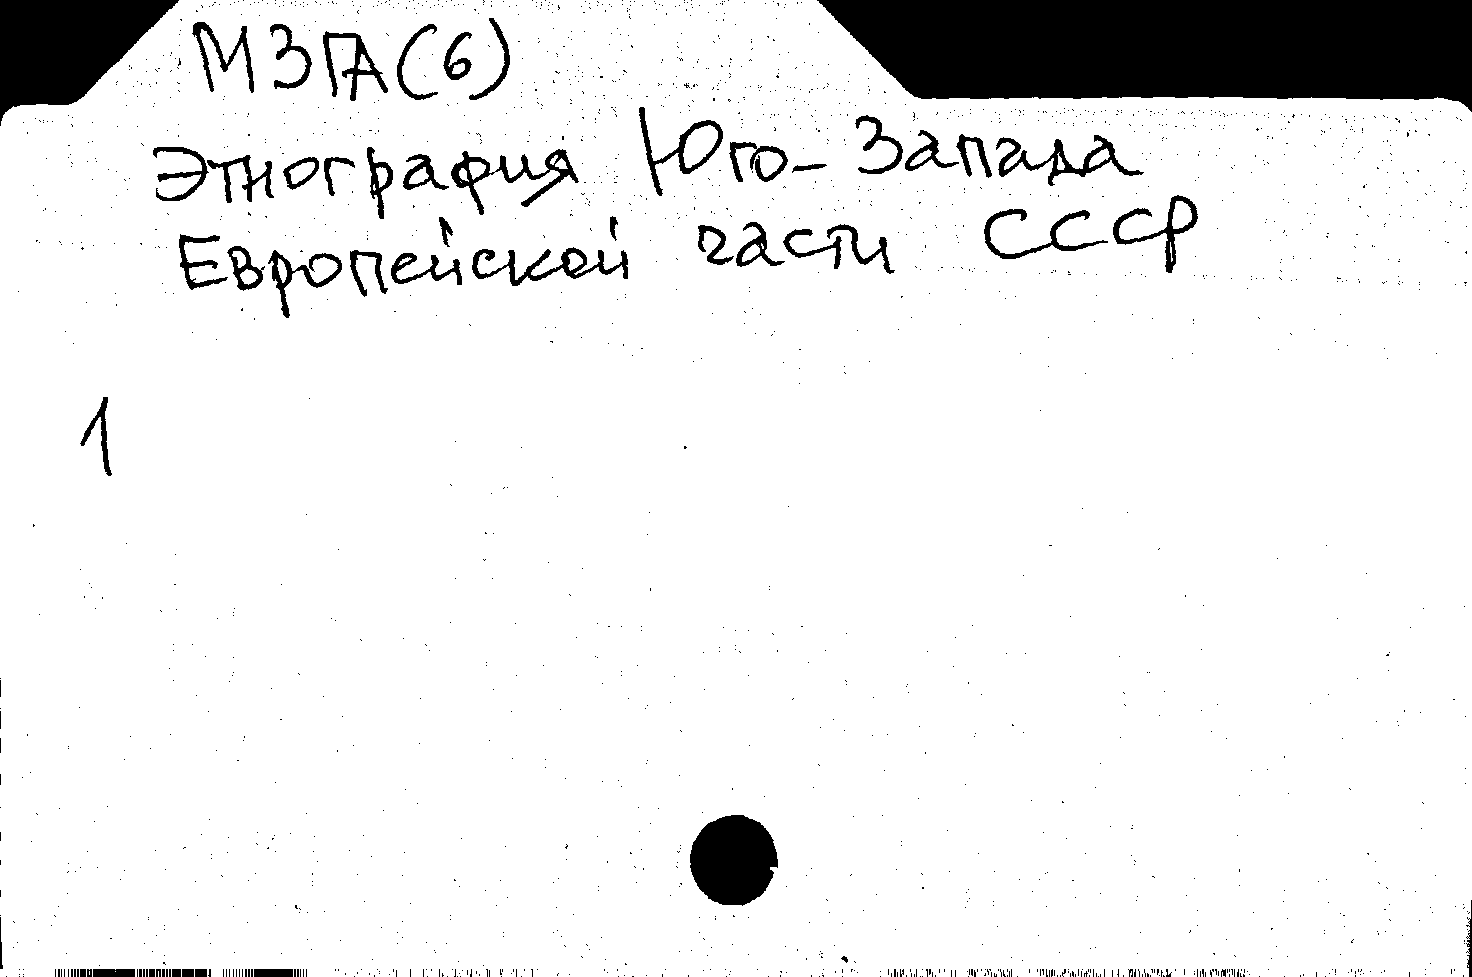 МЗГА(6)
Этнография Юго-Запада
Европейской части СССР
1